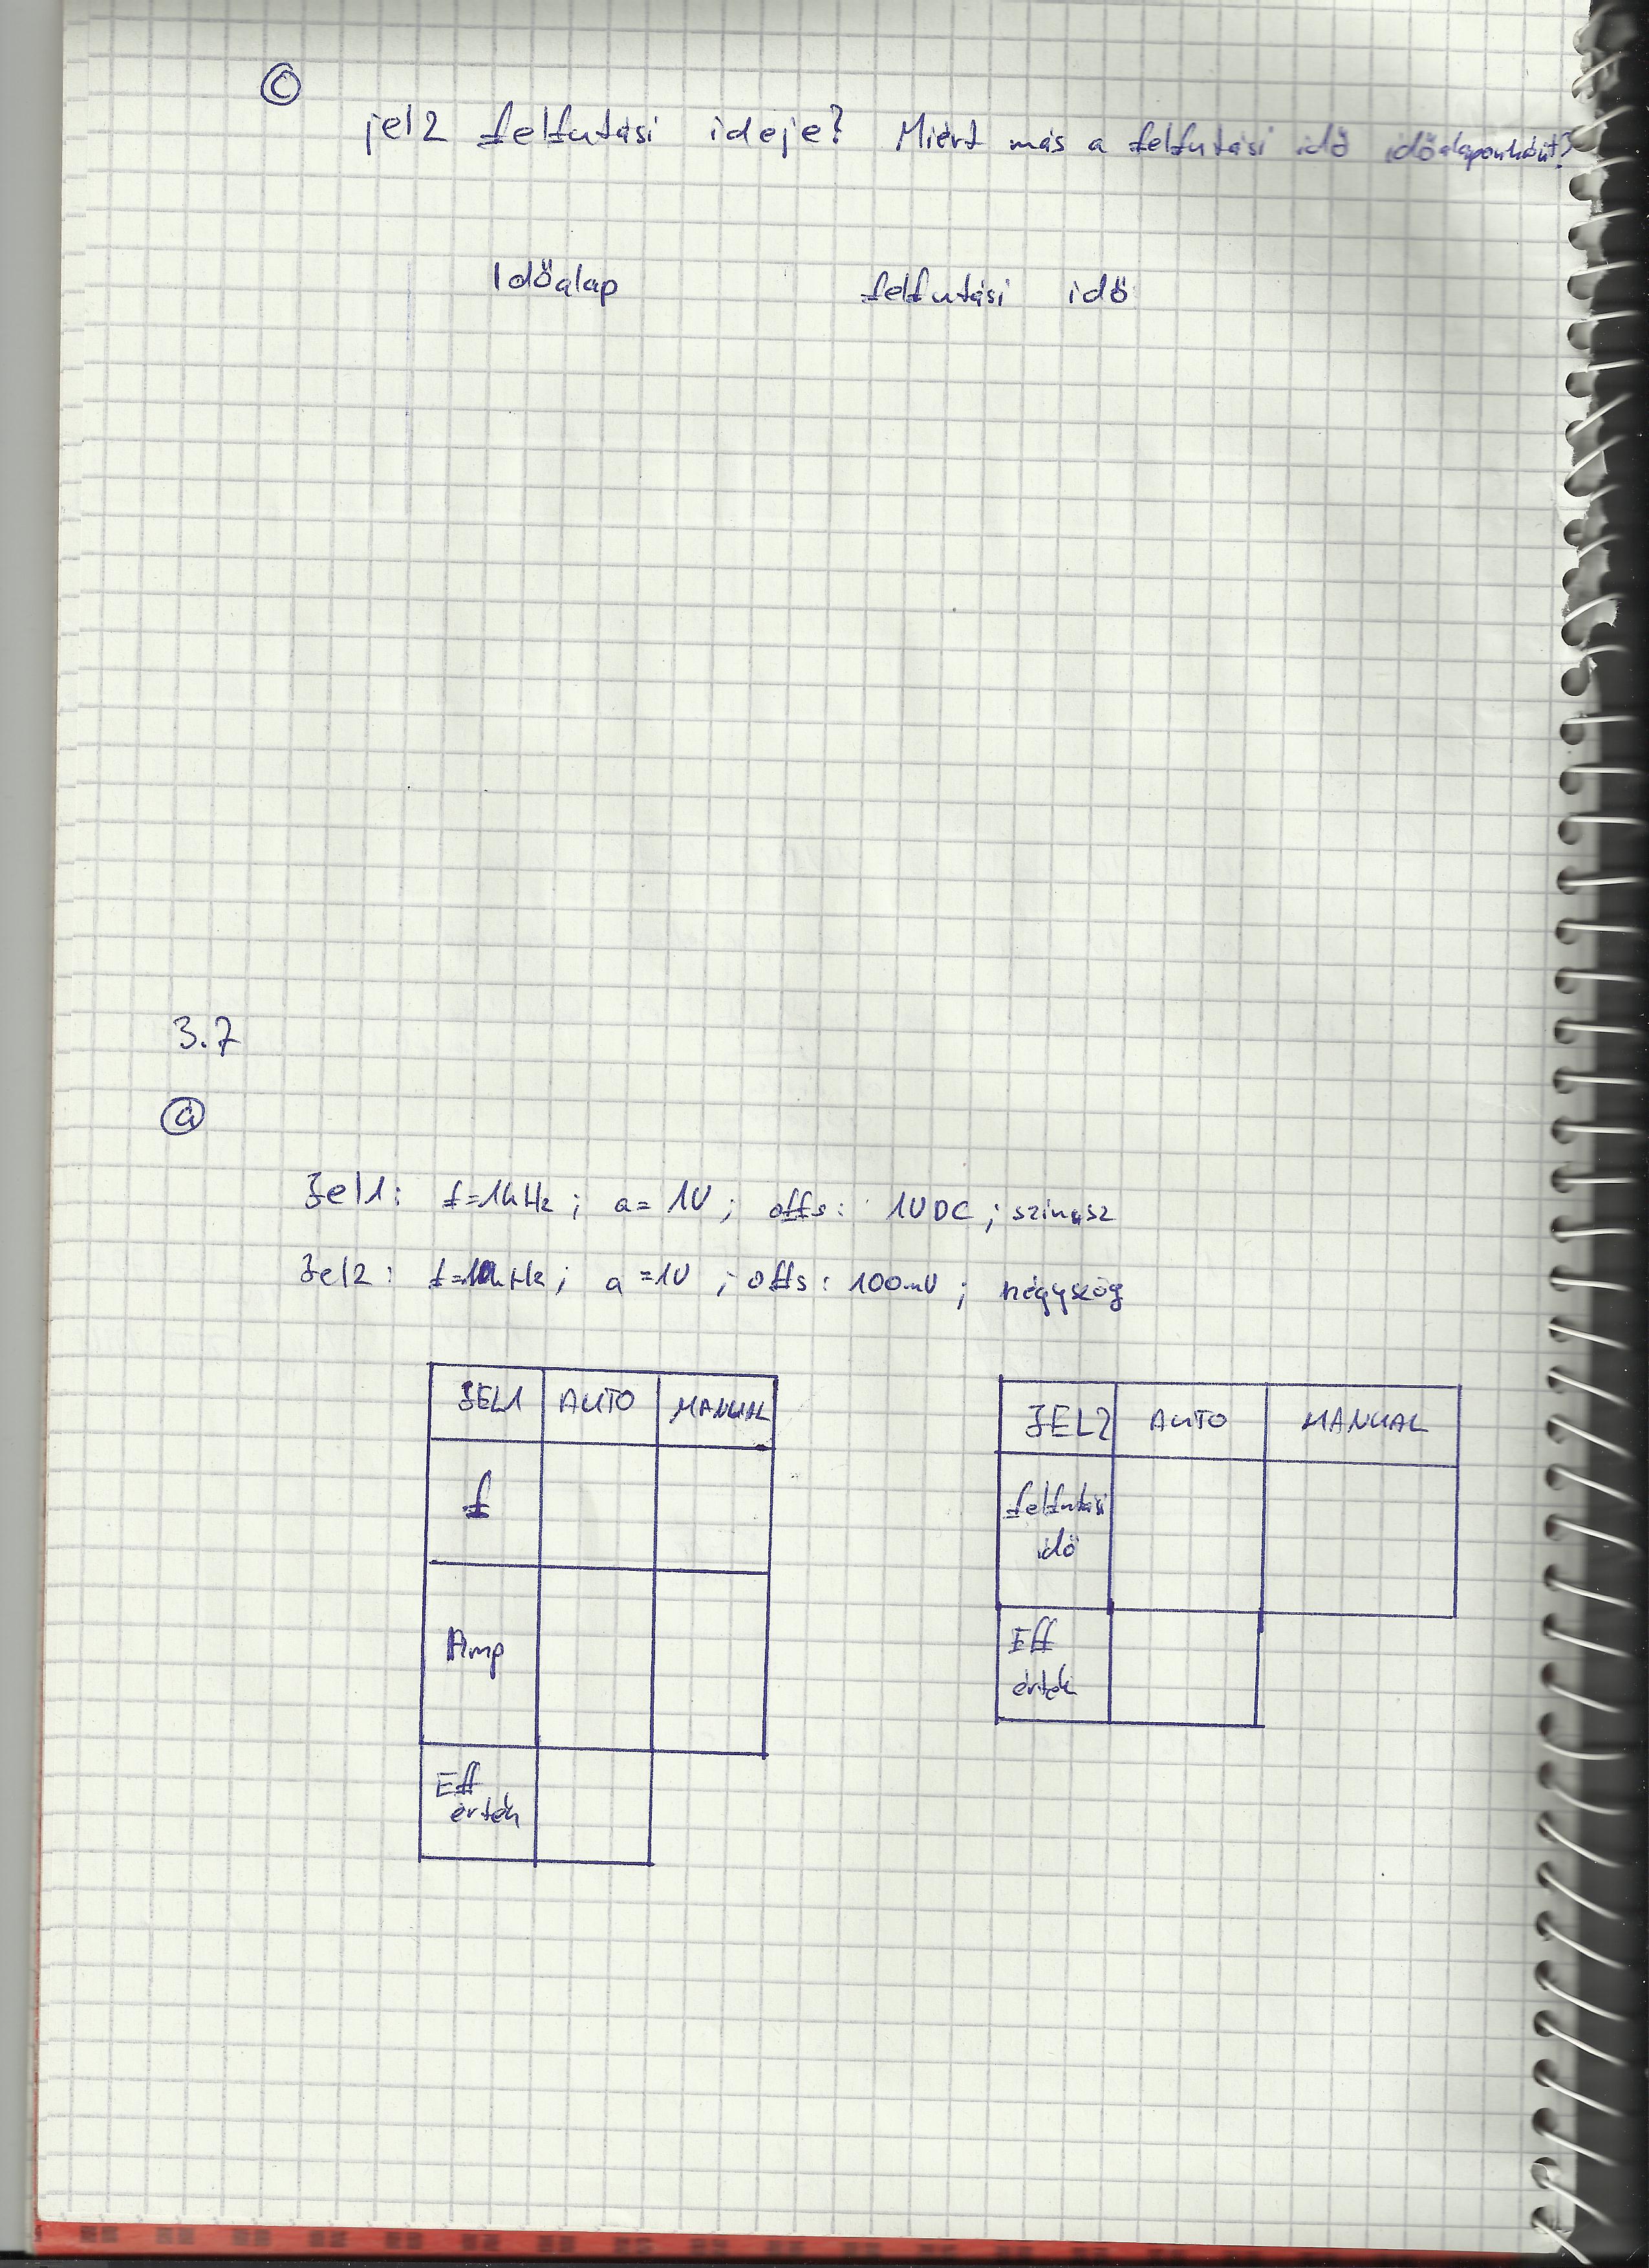 c
jel2 felfutási ideje? Miért más a felfutási idő időalaponként?
Időalap felfutási idő
3.7
a
Jel1: f=1kHz; a=1V; offs: 1VDC; szinusz
Jel2: f=1kHz; a=1V; offs: 100mV; négyszög
JEL1 AUTO MANUAL
f
Amp
Eff
érték
JEL2 AUTO MANUAL
felfutási
idő
Eff
érték